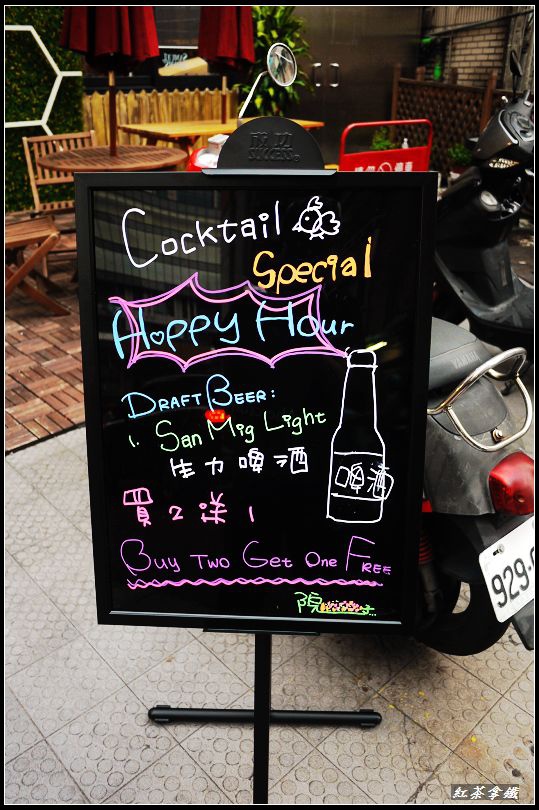 SUCCESS
Cocktail
Special
Happy Hour
DRAFT BEER:
1. San Mig Light
生力啤酒
啤酒
買2送1
Buy Two Get One Free
929-
紅茶拿鐵